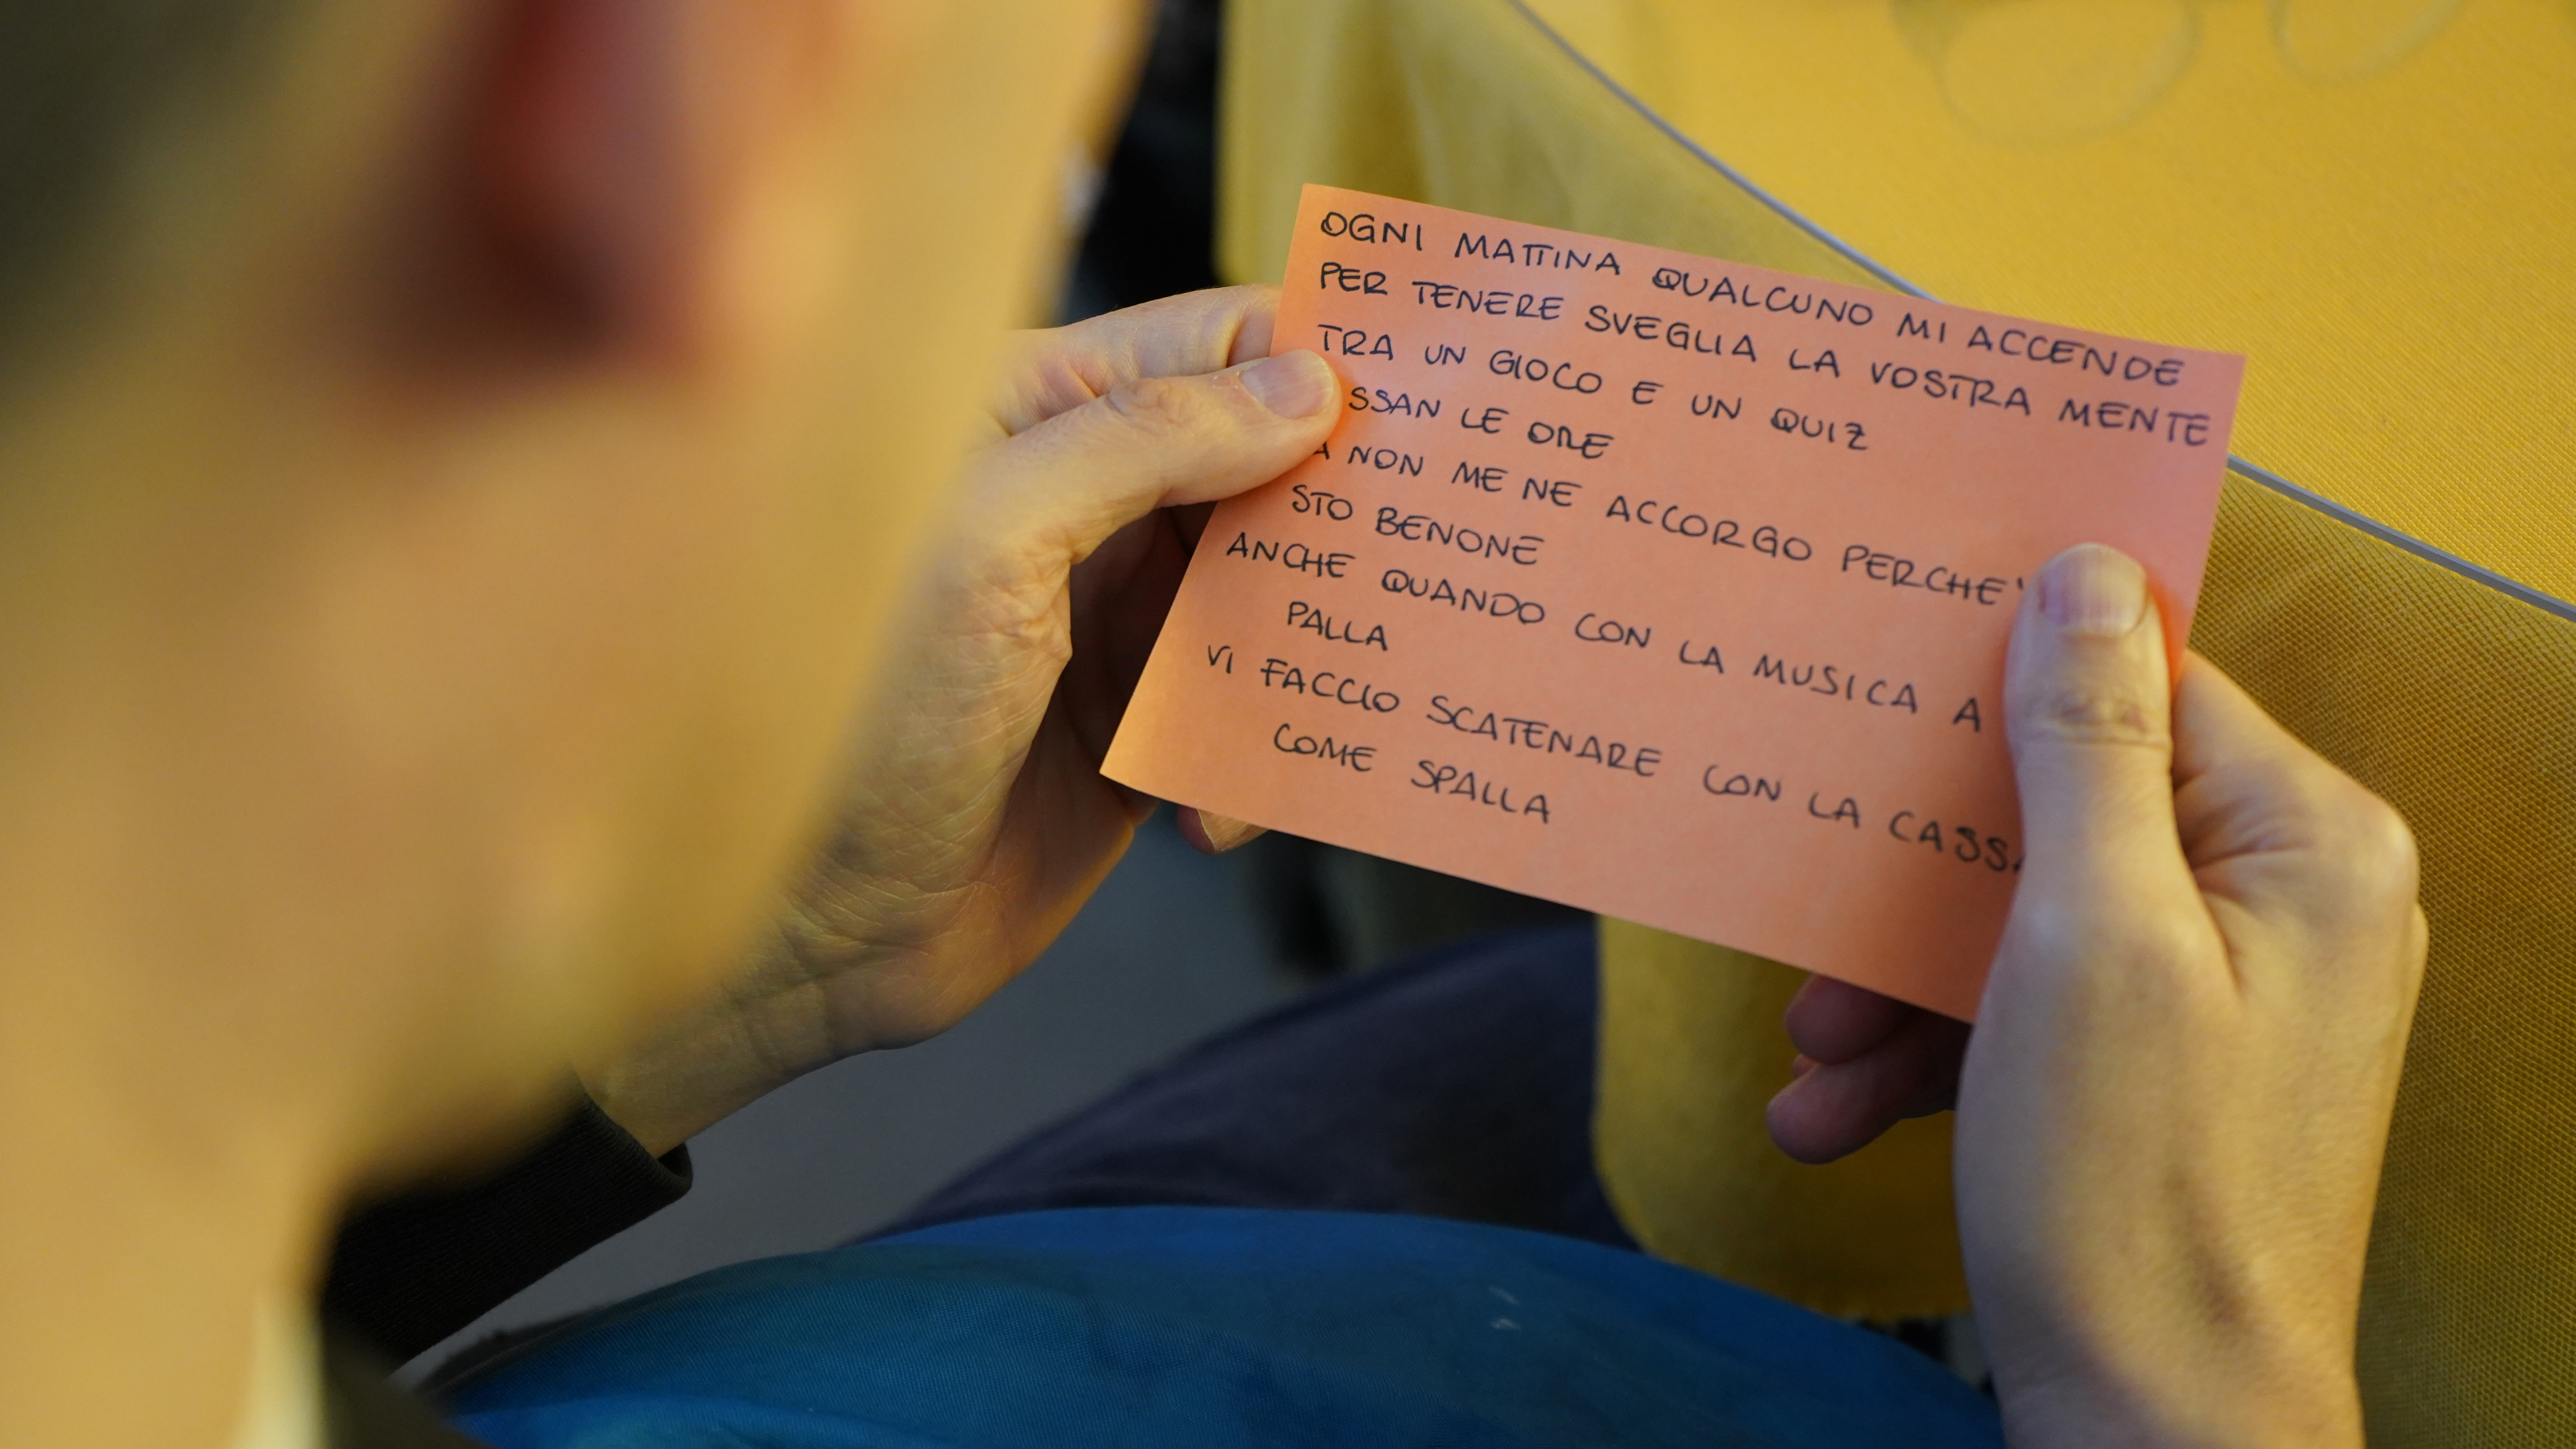 OGNI MATTINA QUALCUNO MI ACCENDE
PER TENERE SVEGLIA LA VOSTRA MENTE
TRA UN GIOCO E UN QUIZ
SSAN LE ORE
A NON ME NE ACCORGO PERCHE'
STO BENONE
ANCHE QUANDO CON LA MUSICA A
PALLA
VI FACCIO SCATENARE CON LA CASSA
COME SPALLA